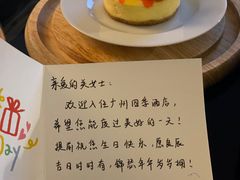 亲爱的吴女士：
欢迎入住广州四季酒店，
希望您能度过美好的一天！
提前祝您生日快乐，愿良辰
吉日时时有，锦瑟年年岁岁拥！
day